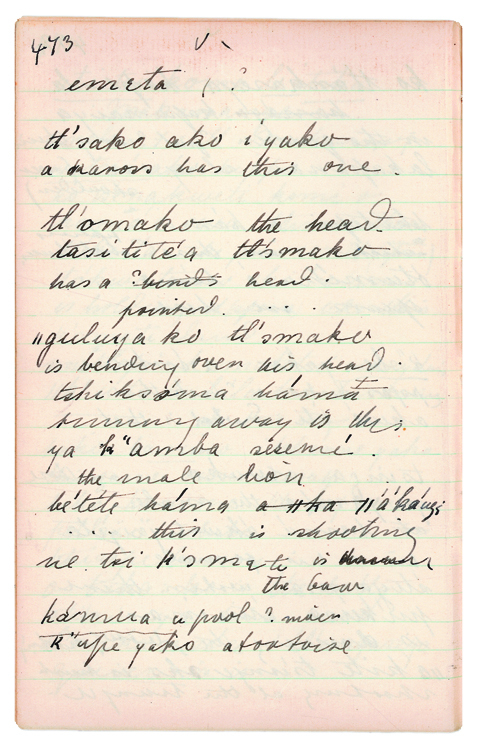 473
emeta (?
tl'sako ako i'yako
a kaross has this one.
tl'omako the head
tasi ti te'a tl'smako
has a ? bird's head.
pointed. . . .
"guluya ko tl'smako
is bending over his head.
tshiksoma háma
running away is this
ya k"amba sesemé.
the male lion
bététe háma a "ka "ákáǹgi
. . . this is shooting
ne tsi k'smate is
the bow
kámua a pool ? moon
k"upe yako a tortoise